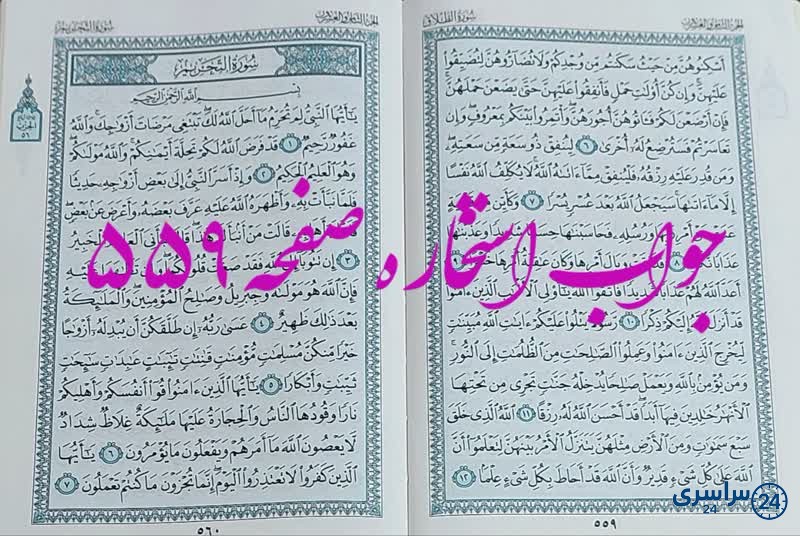 الجزء الثامن والعشرون
سورة الطلاق
أَسْكِنُوهُنَّ مِنْ حَيْثُ سَكَنتُم مِّن وُجْدِكُمْ وَلَا تُضَآرُّوهُنَّ لِتُضَيِّقُوا۟
عَلَيْهِنَّ ۚ وَإِن كُنَّ أُو۟لَٰتِ حَمْلٍ فَأَنفِقُوا۟ عَلَيْهِنَّ حَتَّىٰ يَضَعْنَ حَمْلَهُنَّ ۚ
فَإِنْ أَرْضَعْنَ لَكُمْ فَـَٔاتُوهُنَّ أُجُورَهُنَّ ۖ وَأْتَمِرُوا۟ بَيْنَكُم بِمَعْرُوفٍ ۖ وَإِن
تَعَاسَرْتُمْ فَسَتُرْضِعُ لَهُۥٓ أُخْرَىٰ ﴿٦﴾ لِيُنفِقْ ذُو سَعَةٍ مِّن سَعَتِهِۦ ۖ
وَمَن قُدِرَ عَلَيْهِ رِزْقُهُۥ فَلْيُنفِقْ مِمَّآ ءَاتَىٰهُ ٱللَّهُ ۚ لَا يُكَلِّفُ ٱللَّهُ نَفْسًا
إِلَّا مَآ ءَاتَىٰهَا ۚ سَيَجْعَلُ ٱللَّهُ بَعْدَ عُسْرٍ يُسْرًا ﴿٧﴾ وَكَأَيِّن
أَمْرِ وَرُسُلِهِۦ فَحَاسَبْنَٰهَا وَعَذَّبْنَٰهَا
عَذَابًا وَبَالَ أَمْرِهَا وَكَانَ عَٰقِبَةُ أَمْرِهَا ﴿٩﴾
أَعَدَّ ٱللَّهُ لَهُمْ عَذَابًا شَدِيدًا ۖ فَٱتَّقُوا۟ ٱللَّهَ يَٰٓأُو۟لِى ٱلْأَلْبَٰبِ ٱلَّذِينَ ءَامَنُوا۟ ۚ
قَدْ أَنزَلَ ٱللَّهُ إِلَيْكُمْ ذِكْرًا ﴿١٠﴾ رَّسُولًا يَتْلُوا۟ عَلَيْكُمْ ءَايَٰتِ ٱللَّهِ مُبَيِّنَٰتٍ
لِّيُخْرِجَ ٱلَّذِينَ ءَامَنُوا۟ وَعَمِلُوا۟ ٱلصَّٰلِحَٰتِ مِنَ ٱلظُّلُمَٰتِ إِلَى ٱلنُّورِ ۚ
وَمَن يُؤْمِنۢ بِٱللَّهِ وَيَعْمَلْ صَٰلِحًا يُدْخِلْهُ جَنَّٰتٍ تَجْرِى مِن تَحْتِهَا
ٱلْأَنْهَٰرُ خَٰلِدِينَ فِيهَآ أَبَدًا ۖ قَدْ أَحْسَنَ ٱللَّهُ لَهُۥ رِزْقًا ﴿١١﴾ ٱللَّهُ ٱلَّذِى خَلَقَ
سَبْعَ سَمَٰوَٰتٍ وَمِنَ ٱلْأَرْضِ مِثْلَهُنَّ يَتَنَزَّلُ ٱلْأَمْرُ بَيْنَهُنَّ لِتَعْلَمُوٓا۟ أَنَّ
ٱللَّهَ عَلَىٰ كُلِّ شَىْءٍ قَدِيرٌ وَأَنَّ ٱللَّهَ قَدْ أَحَاطَ بِكُلِّ شَىْءٍ عِلْمًۢا ﴿١٢﴾
٥٥٩
الجزء الثامن والعشرون
سورة التحريم
سُورَةُ التَّحْرِيمِ
بِسْمِ ٱللَّهِ ٱلرَّحْمَٰنِ ٱلرَّحِيمِ
يَٰٓأَيُّهَا ٱلنَّبِىُّ لِمَ تُحَرِّمُ مَآ أَحَلَّ ٱللَّهُ لَكَ ۖ تَبْتَغِى مَرْضَاتَ أَزْوَٰجِكَ ۚ وَٱللَّهُ
غَفُورٌ رَّحِيمٌ ﴿١﴾ قَدْ فَرَضَ ٱللَّهُ لَكُمْ تَحِلَّةَ أَيْمَٰنِكُمْ ۚ وَٱللَّهُ مَوْلَىٰكُمْ ۖ
وَهُوَ ٱلْعَلِيمُ ٱلْحَكِيمُ ﴿٢﴾ وَإِذْ أَسَرَّ ٱلنَّبِىُّ إِلَىٰ بَعْضِ أَزْوَٰجِهِۦ حَدِيثًا
فَلَمَّا نَبَّأَتْ بِهِۦ وَأَظْهَرَهُ ٱللَّهُ عَلَيْهِ عَرَّفَ بَعْضَهُۥ وَأَعْرَضَ عَنۢ بَعْضٍ ۖ
قَالَتْ مَنْ أَنۢبَأَكَ هَٰذَا ۖ قَالَ نَبَّأَنِىَ ٱلْعَلِيمُ ٱلْخَبِيرُ
﴿٣﴾ إِن تَتُوبَآ فَقَدْ صَغَتْ قُلُوبُكُمَا ۖ وَإِن عَلَيْهِ
فَإِنَّ ٱللَّهَ هُوَ مَوْلَىٰهُ وَجِبْرِيلُ وَصَٰلِحُ ٱلْمُؤْمِنِينَ ۖ وَٱلْمَلَٰٓئِكَةُ
بَعْدَ ذَٰلِكَ ظَهِيرٌ ﴿٤﴾ عَسَىٰ رَبُّهُۥٓ إِن طَلَّقَكُنَّ أَن يُبْدِلَهُۥٓ أَزْوَٰجًا
خَيْرًا مِّنكُنَّ مُسْلِمَٰتٍ مُّؤْمِنَٰتٍ قَٰنِتَٰتٍ تَٰٓئِبَٰتٍ عَٰبِدَٰتٍ سَٰٓئِحَٰتٍ
ثَيِّبَٰتٍ وَأَبْكَارًا ﴿٥﴾ يَٰٓأَيُّهَا ٱلَّذِينَ ءَامَنُوا۟ قُوٓا۟ أَنفُسَكُمْ وَأَهْلِيكُمْ
نَارًا وَقُودُهَا ٱلنَّاسُ وَٱلْحِجَارَةُ عَلَيْهَا مَلَٰٓئِكَةٌ غِلَاظٌ شِدَادٌ
لَّا يَعْصُونَ ٱللَّهَ مَآ أَمَرَهُمْ وَيَفْعَلُونَ مَا يُؤْمَرُونَ ﴿٦﴾ يَٰٓأَيُّهَا
ٱلَّذِينَ كَفَرُوا۟ لَا تَعْتَذِرُوا۟ ٱلْيَوْمَ ۖ إِنَّمَا تُجْزَوْنَ مَا كُنتُمْ تَعْمَلُونَ ﴿٧﴾
٥٦٠
الحزب
٥٦
جواب استخاره صفحه ۵۵۹
سراسری
24
24